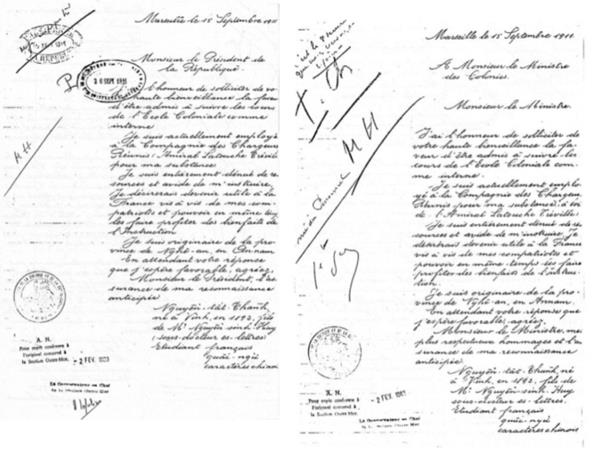 Marseille le 15 Septembre 1911
Monsieur le Président de
la République
J'ai l'honneur de solliciter de vo
haute bienveillance la faveur
d'être admis à suivre les cours
de l'Ecole Coloniale comme
interne
Je suis actuellement employé
à la Compagnie des Chargeurs
Réunis: Amiral Latouche Tréville
pour ma subsistance
Je suis entièrement dénué de res
sources et avide de m'instruire.
Je désirerais devenir utile à la
France vis à vis de mes com-
patriotes et pouvoir en même temps
les faire profiter des bienfaits de
l'Instruction
Je suis originaire de la pro
vince de Nghê-an, en Annam
En attendant votre réponse
que j'espère favorable, agréez,
Monsieur le Président, l'as
surance de ma reconnaissance
anticipée
Nguyên-tât Thanh,
né à Vinh, en 1892, fils
de Mr Nguyên sinh Huy
(sous-docteur ès-lettres)
Etudiant français
quôc-ngu
caractères chinois
16 SEPT 1911
M H
A. N.
Pour copie conforme à
l'original conservé à
la Section Outre-Mer.
- 2 FEV. 1983
Le Conservateur en Chef
Marseille le 15 Septembre 1911.
A Monsieur le Ministre
des Colonies.
Monsieur le Ministre
J'ai l'honneur de solliciter de
votre haute bienveillance la fa-
veur d'être admis à suivre les
cours de l'Ecole Coloniale com
me interne.
Je suis actuellement emplo
yé à la Compagnie des Chargeurs
Réunis pour ma subsistance, à bord
de l'Amiral Latouche Tréville
Je suis entièrement dénué de res
sources et avide de m'instruire. Je
désirerais devenir utile à la France
vis à vis de mes compatriotes et
pouvoir en même temps les faire
profiter des bienfaits de l'instruc
tion.
Je suis originaire de la pro
vince de Nghê-an, en Annam.
En attendant votre réponse que
j'espère favorable, agréez,
Monsieur le Ministre, mes
plus respectueux hommages et l'as
surance de ma reconnaissance
anticipée
Nguyên-tât Thanh, né
à Vinh, en 1892, fils de
Mr Nguyên-sinh-Huy
sous-docteur ès-lettres.
Etudiant français
quôc-ngu
caractères chinois
M H
A. N.
Pour copie conforme à
l'original conservé à
la Section Outre-Mer.
- 2 FEV. 1983
Le Conservateur en Chef